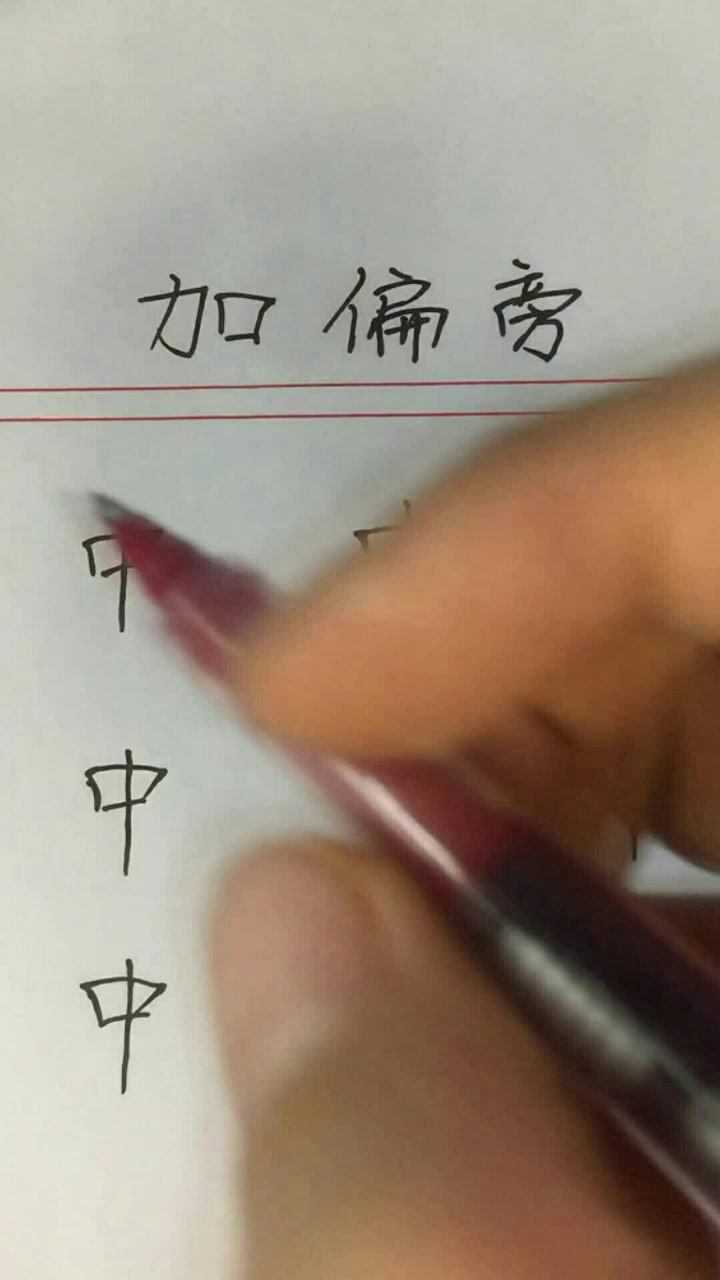 加偏旁
中
中
中